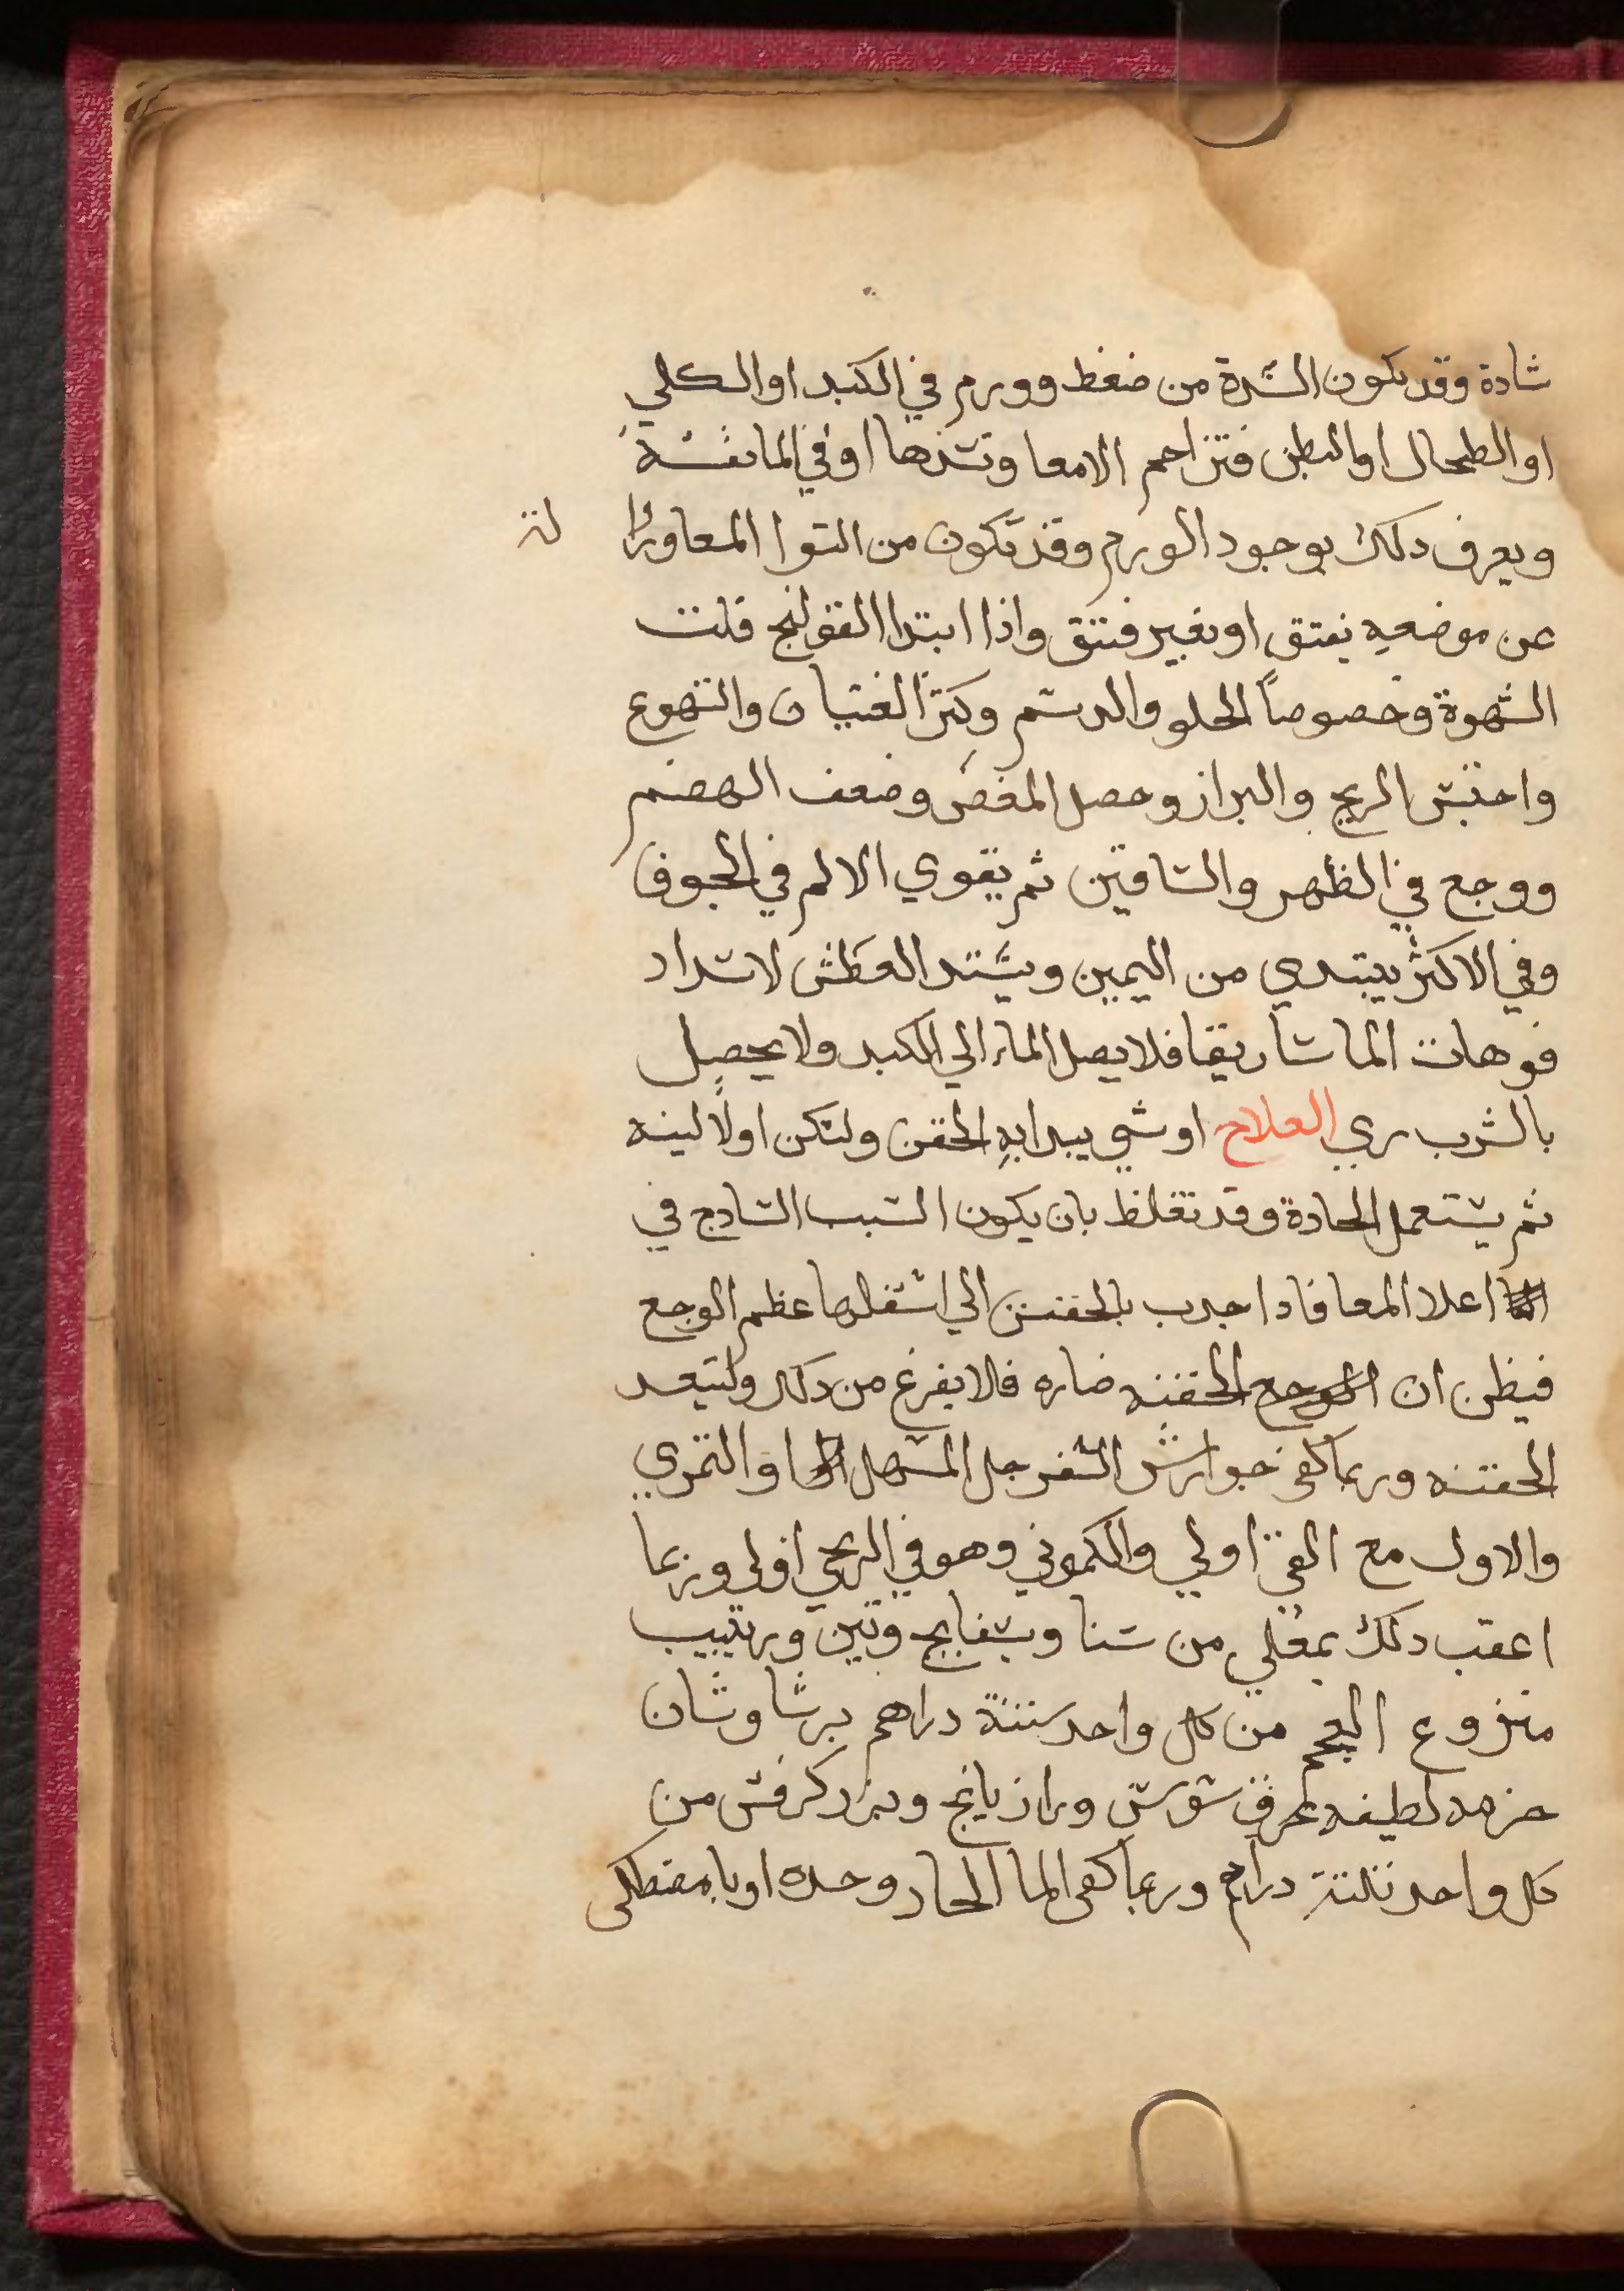 شادة وقد يكون السدة من ضغط وورم في الكبد او الكلي
او الطحال او البطن فتزاحم الامعا وتسدها او في المانفسه
ويعرف دلك بوجود الورم وقد تكون من التوا المعا وزوا له
عن موضعه بفتق او بغير فتق واذا ابتدا القولنج قلت
الشهوة وخصوصاً الحلو والدسم وكثر الغثيان والتهوع
واحتبس الريح والبراز وحصل المغص وضعف الهضم
ووجع في الظهر والساقين ثم يقوي الالم في الجوف
وفي الاكثر يبتدي من اليمين ويشتد العطش لانسداد
فوهات الماساريقا فلا يصل الماء الي الكبد ولا يحصل
بالشرب ري العلاج او شي يبدا به الحقن ولتكن اولاً لينه
ثم يستعمل الحادة وقد تغلظ بان يكون السبب السادج في
اعلا المعا فادا جدب بالحقنه الي اسفلها عظم الوجع
فيظن ان الحقنه ضاره فلا يفرغ من دلك ولتيعد
الحقنه وربما كفى جوارش السفرجل المسهل او التمري
والاول مع القي اولي والكموني وهو في الريحي اولي وربما
اعقب دلك بمغلي من سنا وبسفايج وتين وزبيب
منزوع العجم من كل واحد ستة دراهم برشاوشان
حزمه لطيفه عرق سوس ورازيانج وبزر كرفس من
كل واحد ثلثة دراهم وربما كفى الما الحار وحده او بامصطكى